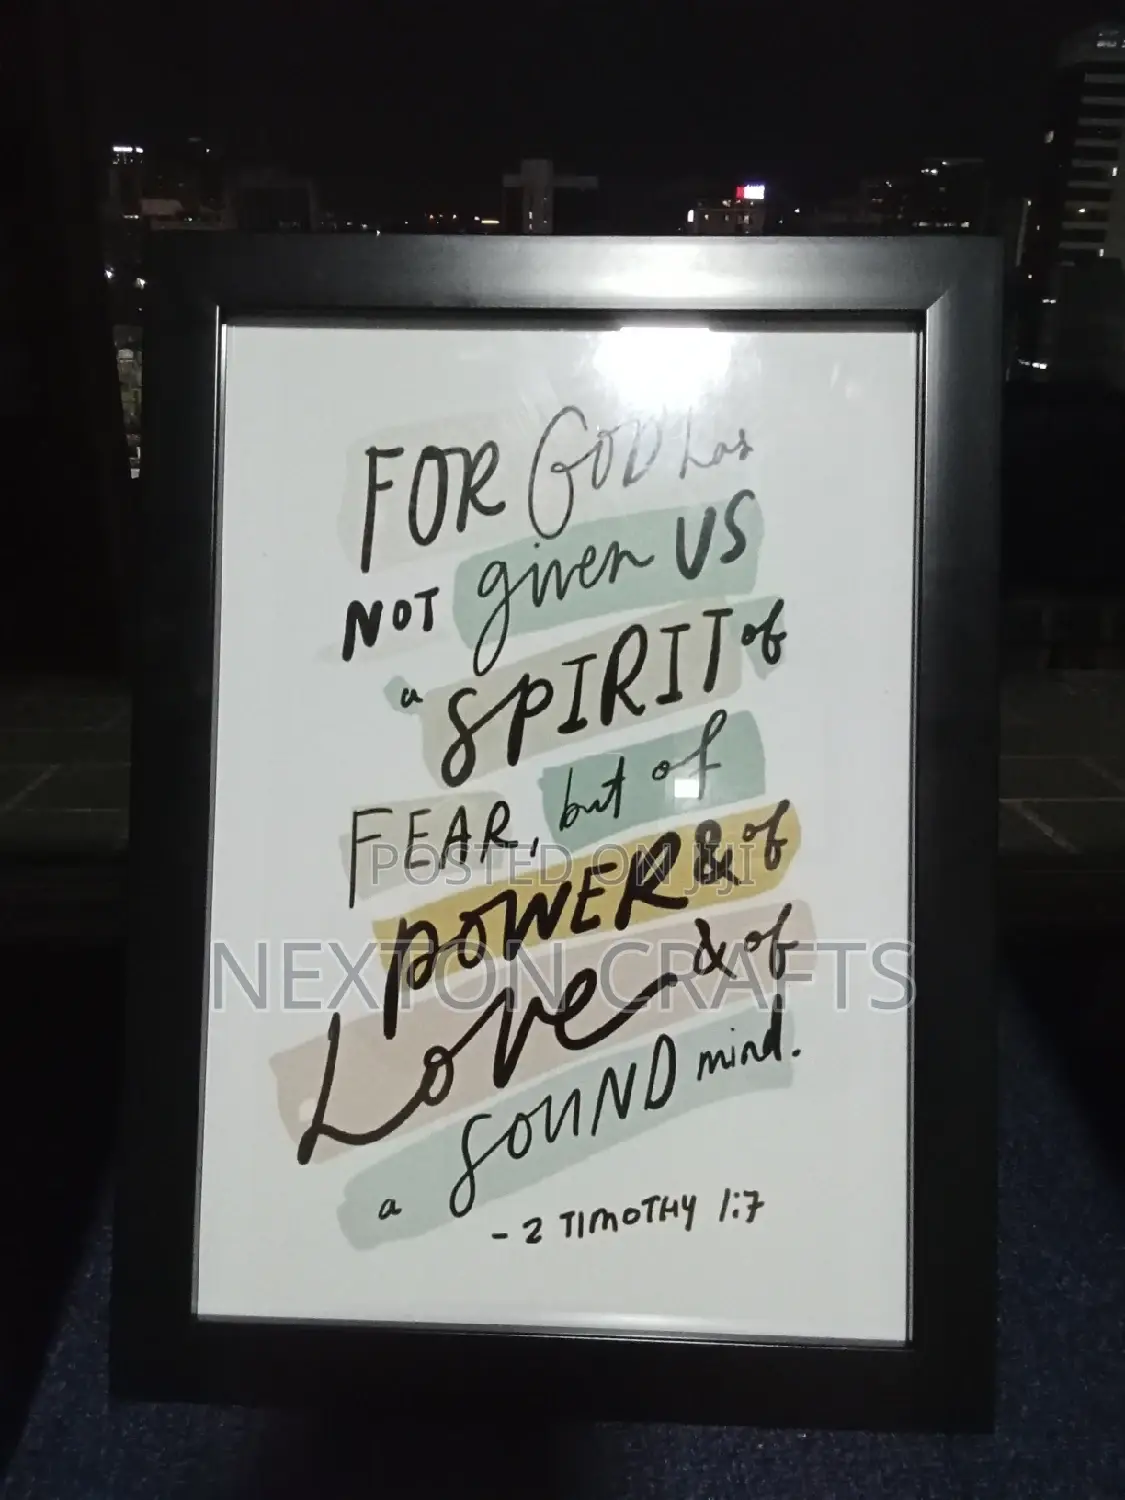 FOR GOD has
NOT given US
a SPIRIT of
FEAR, but of
POSTED ON JIJI
POWER & of
NEXTON CRAFTS
Love & of
a SOUND mind.
- 2 TIMOTHY 1:7